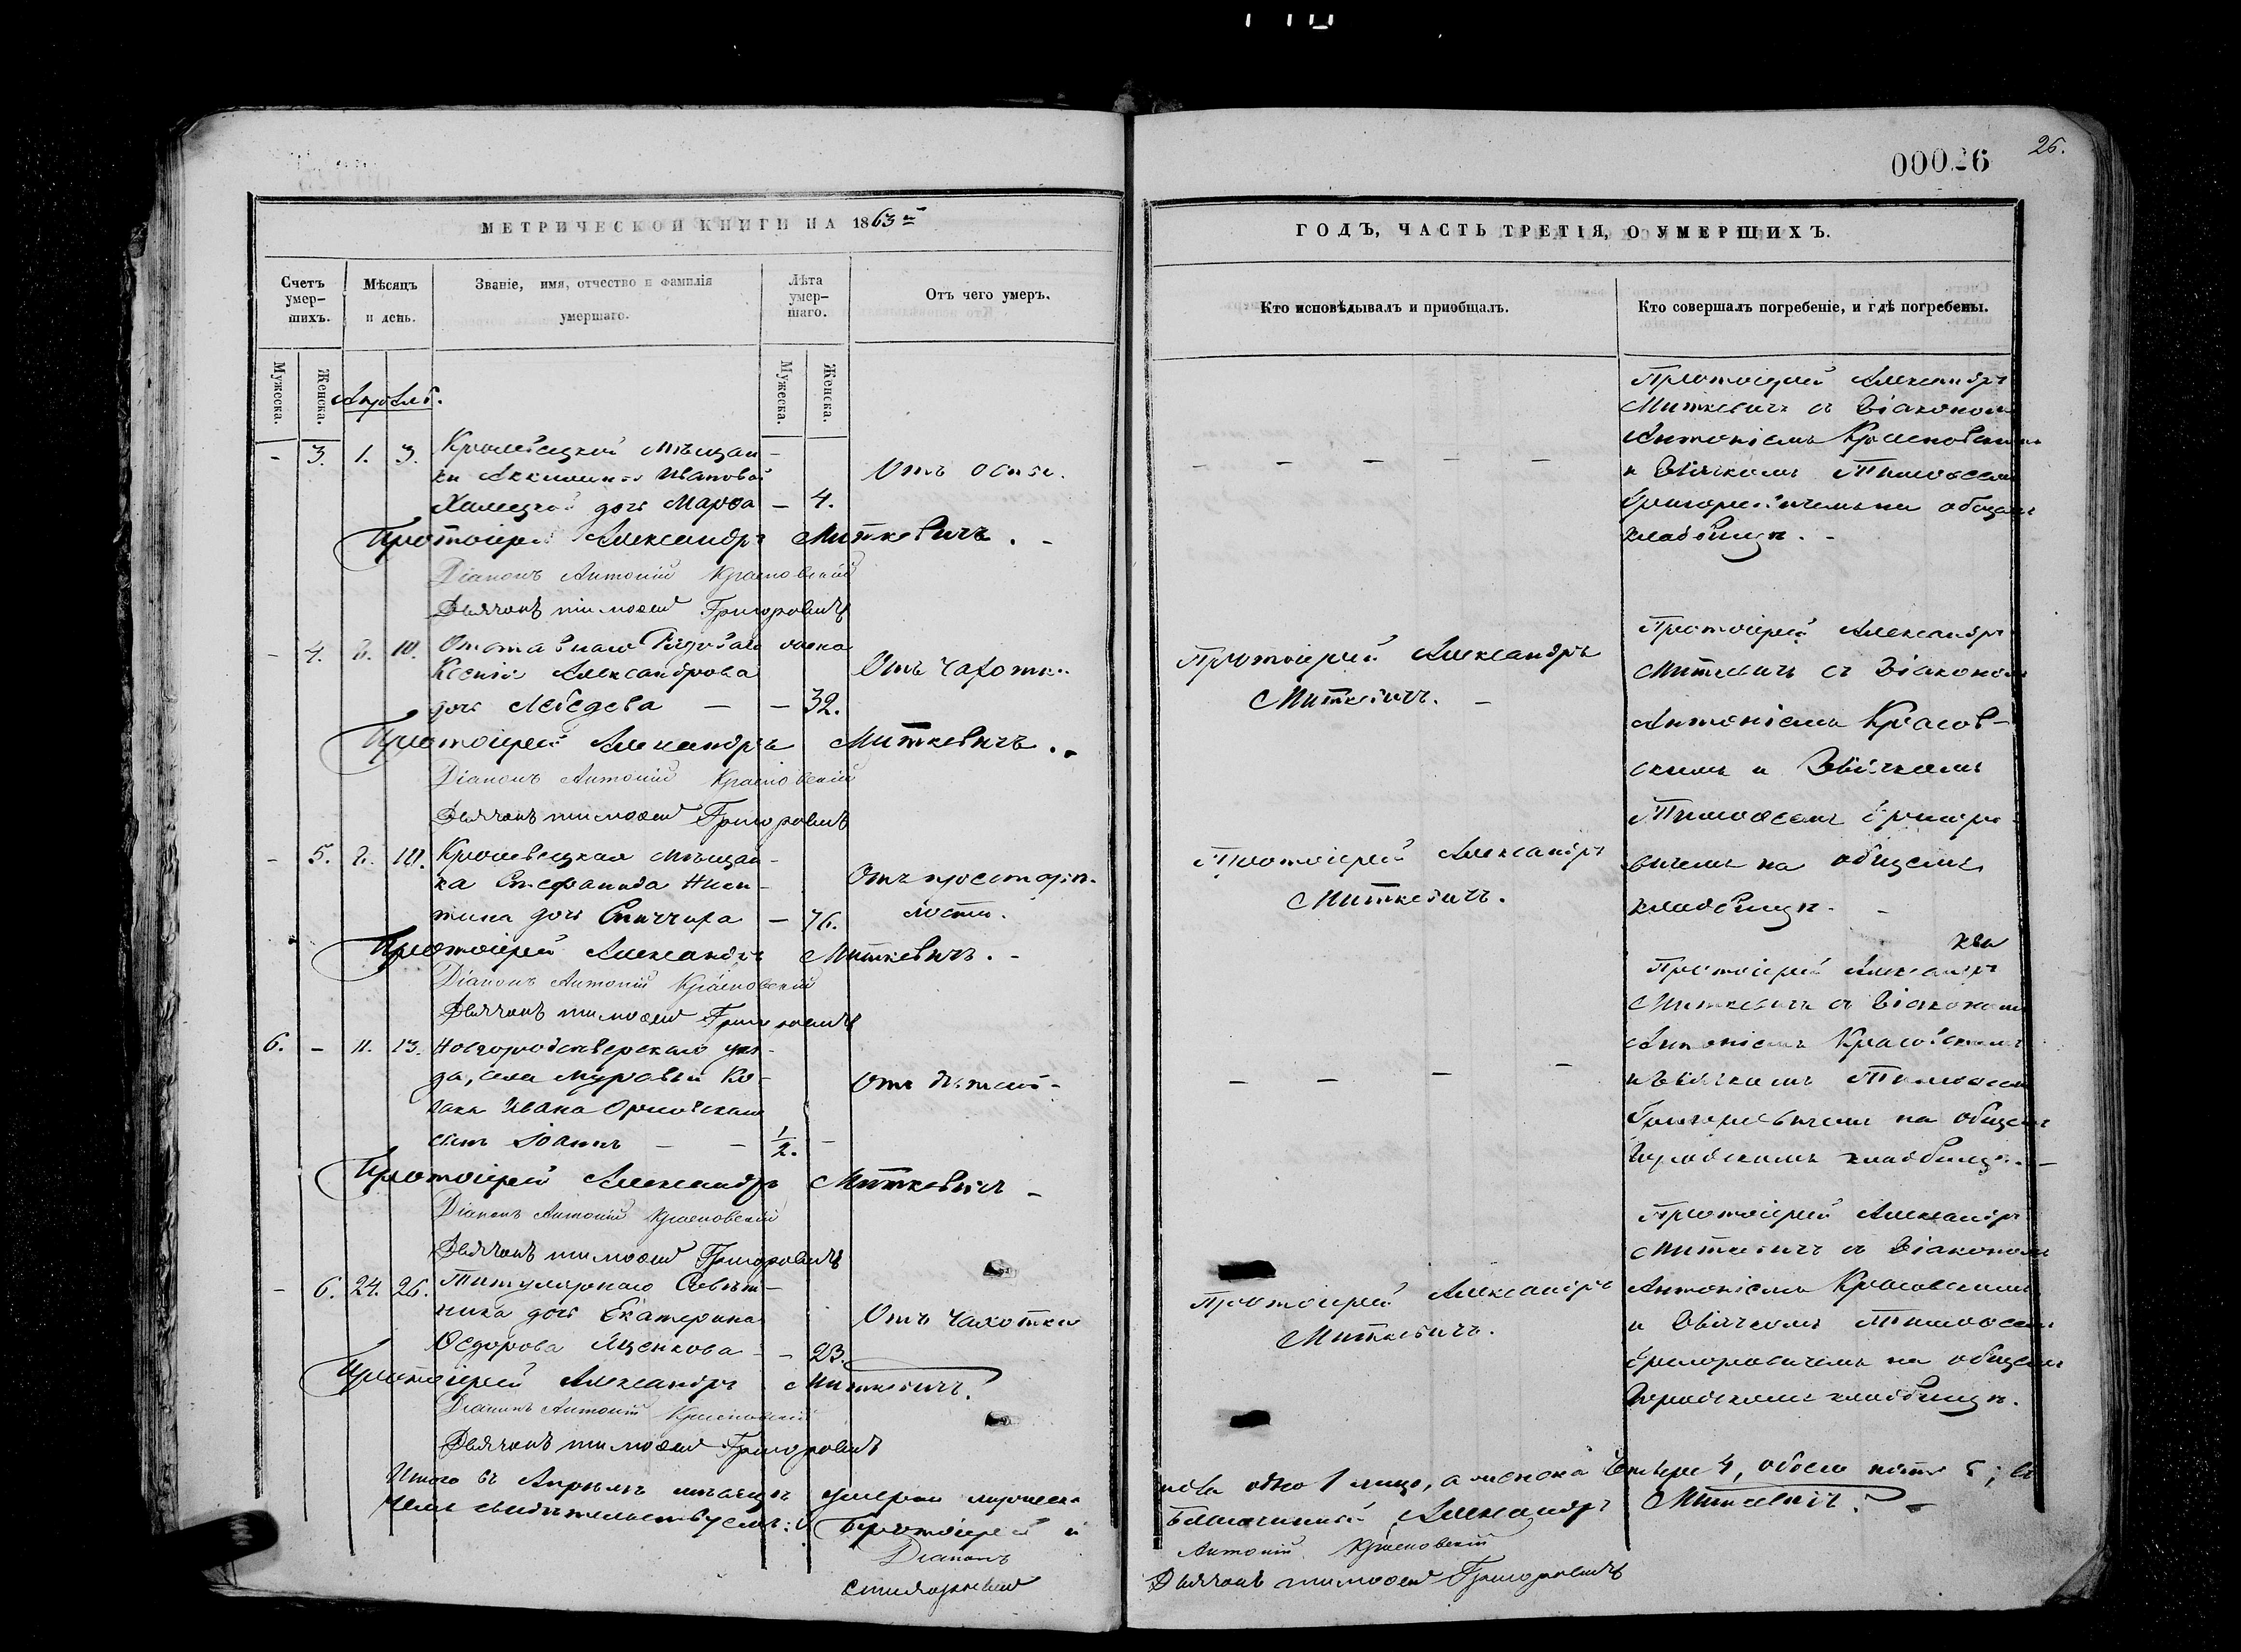 26.
00026
МЕТРИЧЕСКОЙ КНИГИ НА 1863й
ГОДЪ, ЧАСТЬ ТРЕТІЯ, О УМЕРШИХЪ.
Счетъ умер-шихъ.
Мѣсяцъ и день.
Званіе, имя, отчество и фамилія умершаго.
Лѣта умер-шаго.
Отъ чего умеръ.
Кто исповѣдывалъ и пріобщалъ.
Кто совершалъ погребеніе, и гдѣ погребены.
Мужеска.
Женска.
Мужеска.
Женска.
Апрѣль.
- 3. 1. 3. Кролевецкой мѣщан-
ки Ивановой
дочь Марѳа - 4.
Отъ оспы.
Протоіерей Александръ
Миткевичъ съ Діакономъ
Антоніемъ Красновскимъ
и Дьячкомъ Тимоѳеемъ
Григоровичемъ на общемъ
кладбищѣ. -
Протоіерей Александръ Миткевичъ. -
Діаконъ Антоній Красновскій
Дьячокъ Тимоѳей Григоровичъ
- 4. 2. 10. Отставнаго
Ксенія Александрова
дочь Лебедева - - 32.
Отъ чахотки
Протоіерей Александръ
Миткевичъ. -
Протоіерей Александръ
Миткевичъ съ Діакономъ
Антоніемъ Красов-
скимъ и Дьячкомъ
Тимоѳеемъ Григоро-
вичемъ на общемъ
кладбищѣ. -
Протоіерей Александръ Миткевичъ. -
Діаконъ Антоній Красновскій
Дьячокъ Тимоѳей Григоровичъ
- 5. 2. 10. Кролевецкая мѣщан-
ка Стефанида Ники-
тина дочь - 76.
Отъ престарѣ-
лости.
Протоіерей Александръ
Миткевичъ.
Протоіерей Александръ Миткевичъ. -
Діаконъ Антоній Красновскій
Дьячокъ Тимоѳей Григоровичъ
6. - 11. 13. Новгородсѣверскаго уѣз-
да, села Муравьи Ко-
зака Ивана
сынъ Іоаннъ - - 1/2. -
Протоіерей Александръ
Миткевичъ съ Діакономъ
Антоніемъ Красовскимъ
и Дьячкомъ Тимоѳеемъ
Григоровичемъ на общемъ
Городскомъ кладбищѣ. -
Протоіерей Александръ Миткевичъ -
Діаконъ Антоній Красновскій
Дьячокъ Тимоѳей Григоровичъ
- 6. 24. 26. Титулярнаго Совѣт-
ника дочь Екатерина
Ѳедорова Яценкова - - 23.
Отъ чахотки
Протоіерей Александръ
Миткевичъ.
Протоіерей Александръ
Миткевичъ съ Діакономъ
Антоніемъ Красовскимъ
и Дьячкомъ Тимоѳеемъ
Григоровичемъ на общемъ
Городскомъ кладбищѣ.
Протоіерей Александръ Миткевичъ.
Діаконъ Антоній Красновскій
Дьячокъ Тимоѳей Григоровичъ
Итого въ Апрѣлѣ мѣсяцѣ умерло мужеска пола одно 1 лицо, а женска четыре 4, обоего пола 5; въ
чемъ свидѣтельствуемъ: Протоіерей и Благочинный Александръ Миткевичъ. -
Діаконъ Антоній Красновскій
Дьячокъ Тимоѳей Григоровичъ